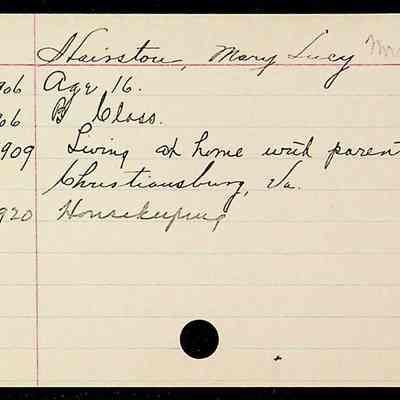 Hairston, Mary Lucy Mrs
906 Age 16.
906 B Class.
1909 Living at home with parent
Christiansburg, Va.
920 Housekeeping